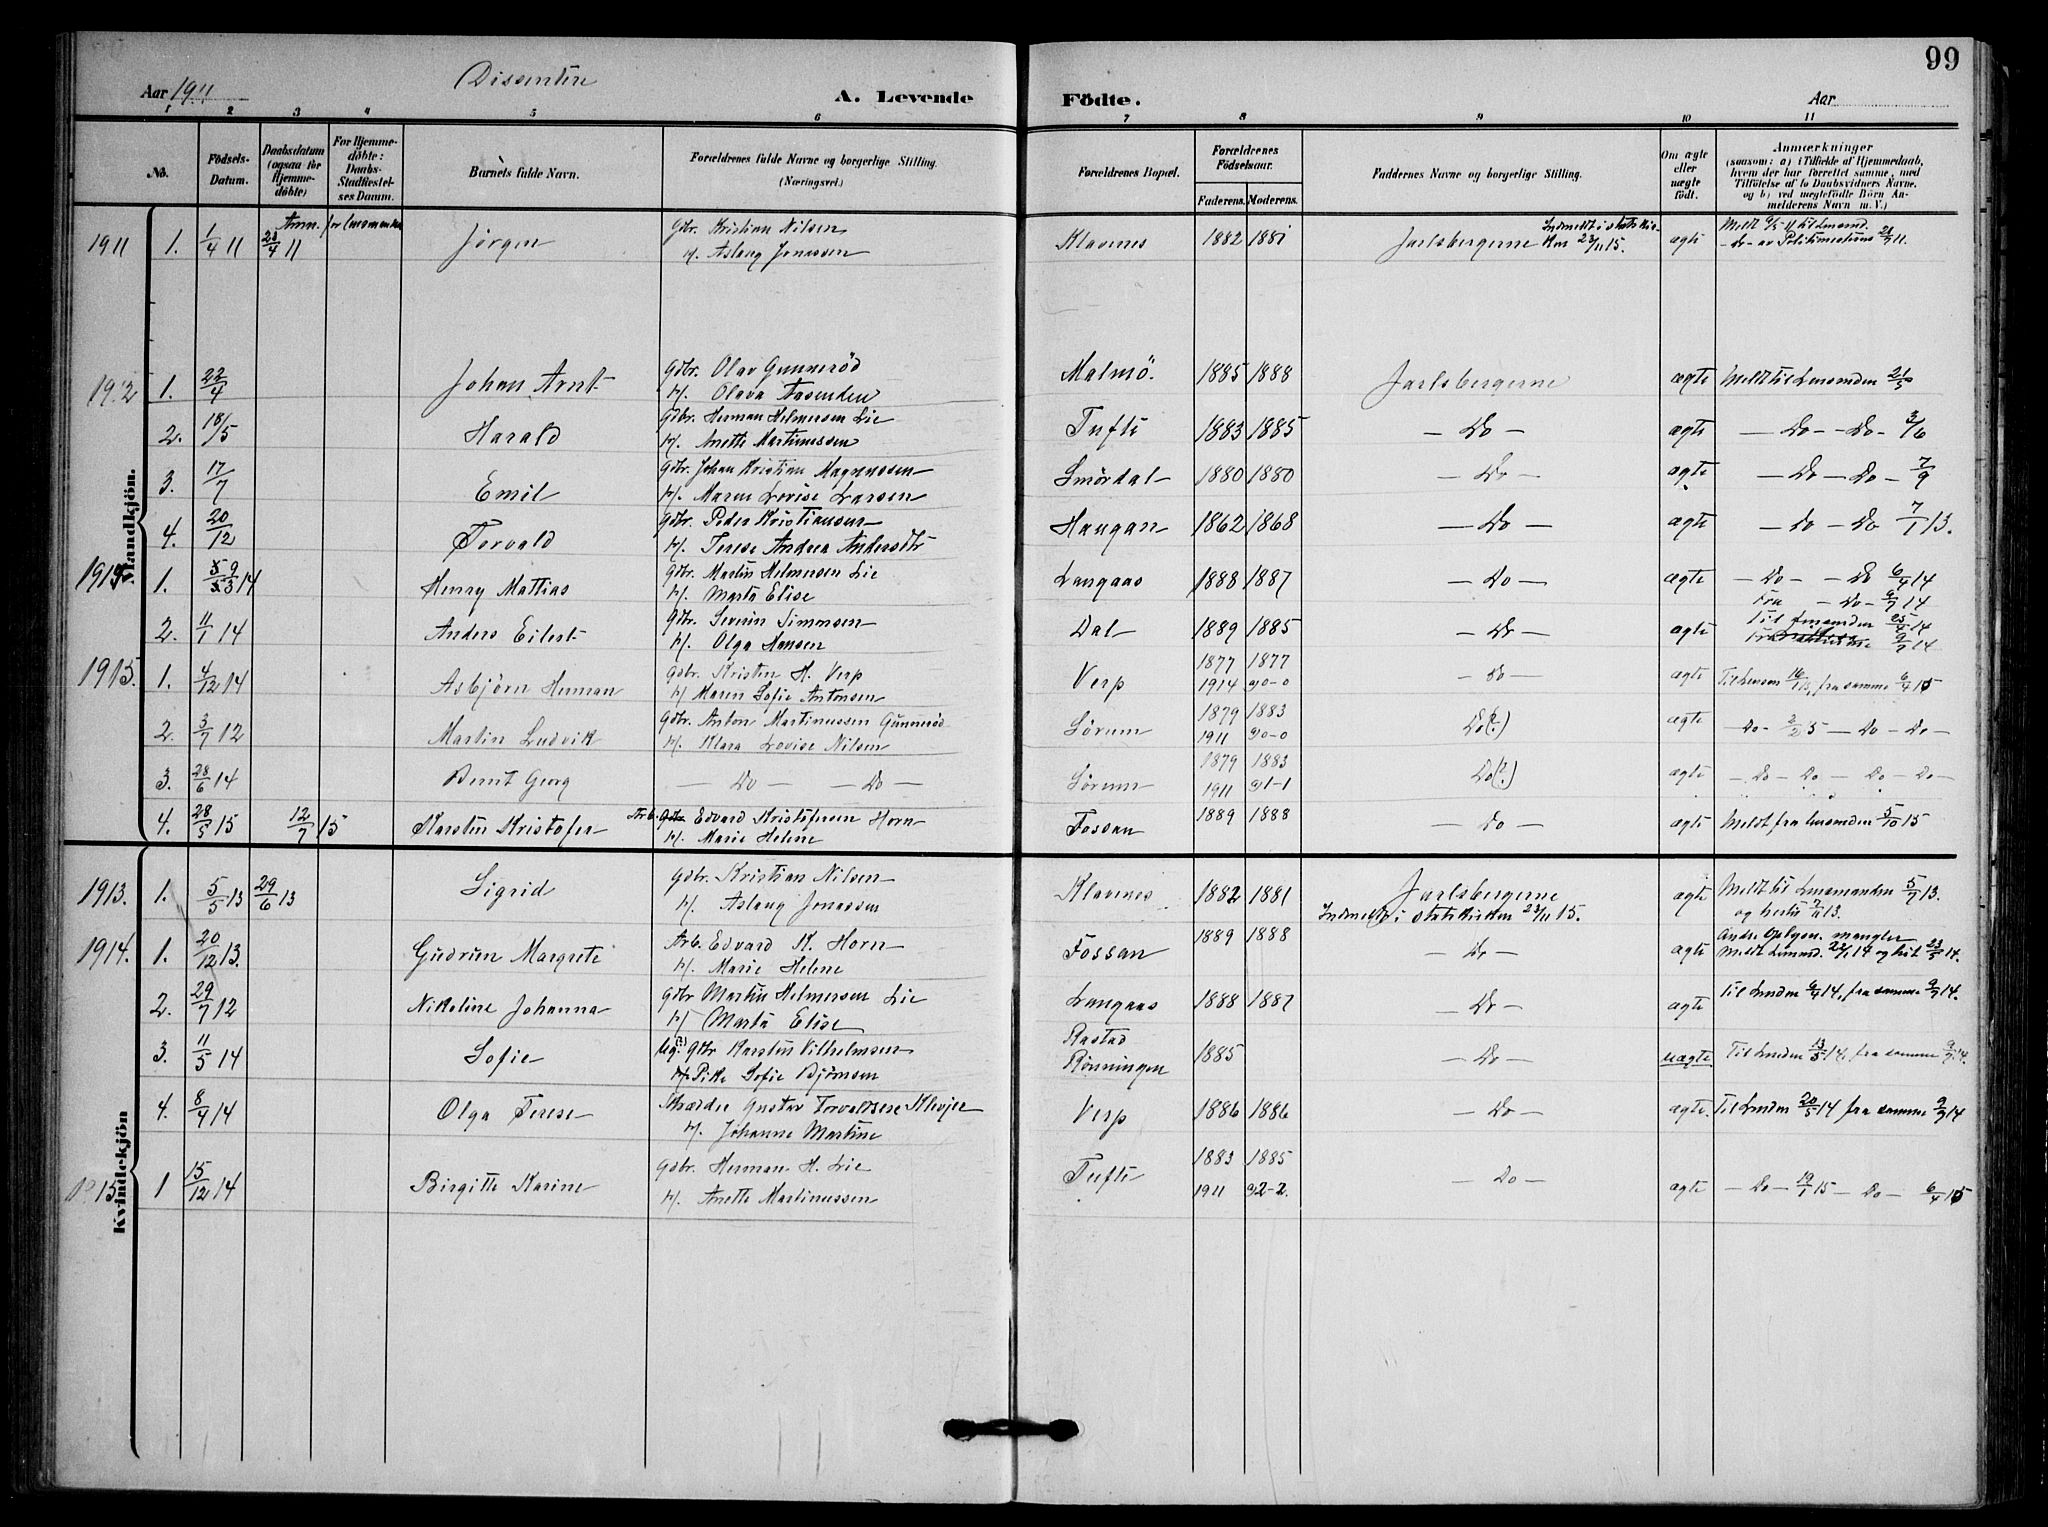 99
Dissentere
Aar 1911
A. Levende Födte.
Aar
1 2 3 4 5 6 7 8 9 10 11
No. Födsels-Datum. Daabsdatum (ogsaa for Hjemme-döbte) For Hjemme-döbte: Daabs-Stadfæstel-ses Datum. Barnets fulde Navn. Forældrenes fulde Navne og borgerlige Stilling. (Næringsvei.) Forældrenes Bopæl. Forældrenes Födselsaar. Faderens. Moderens. Faddernes Navne og borgerlige Stilling. Om ægte eller uægte födt. Anmærkninger (saasom: a) i Tilfælde af Hjemmedaab, hvem der har forrettet samme, med Tilföielse af to Daabsvidners Navne, og b) ved uægtefödte Börn An-melderens Navn m. V.)
Mandkjön.
1911 1. 1/4 11 23/4 11 Anm. for Lensmanden Jørgen Gdbr. Kristian Nilsen
H/. Aslaug Jonassen Klavenes 1882 1881 Jarlsbergerne Indmeldt i statskirken 23/11 15. ægte Meldt 9/5 11 til Lensmd.
-do- av Politimesteren 21/7 11.
1912 1. 22/4 Johan Arnt Gdbr. Olav Gunnerød
H/. Olava Aasenden Malmö. 1885 1888 Jarlsbergerne ægte Meldt til Lensmden 21/5
2. 18/5 Harald Gdbr. Herman Helmersen Lie
H/. Anette Martinussen Tufte 1883 1885 — Do — ægte — Do — Do — 3/6
3. 17/7 Emil Gdbr. Johan Kristian Magnussen
H/. Maren Lovise Larsen Smørdal 1880 1880 — Do — ægte — Do — Do — 7/9
4. 20/12 Torvald Gdbr. Peder Kristiansen
H/. Terese Andrea Andersdtr Haugan 1862 1868 — Do — ægte — Do — Do 7/1 13.
1. 9/3 14 Henry Mattias Gdbr. Martin Helmersen Lie
H/. Marta Elise Langaas 1888 1887 — Do — ægte — Do — Do 6/4 14
Fra — Do — 9/7 14
2. 11/1 14 Anders Eilert Gdbr. Severin Simmsen
H/. Olga Hansen Dal 1889 1885 — Do — ægte Til Lensmden 25/4 14
Fra 9/7 14
1915. 1. 4/12 14 Asbjørn Herman Gdbr. Kristen H. Verp
H/ Maren Sofie Antonsen Verp 1877 1877
1914 g0-0 — do — ægte Til Lensm 16/1 15, fra samme 6/4 15
2. 3/7 12 Martin Ludvik Gdbr. Anton Martinussen Gunnerød
H/. Klara Lovise Nilsen Sørum 1879 1883
1911 g0-0 Do(?) ægte — Do — 2/2 15 — Do — Do —
3. 28/6 14 Bernt Georg — Do — — Do — Sørum 1879 1883
1911 g1-1 Do(?) ægte — Do — Do — Do — Do —
4. 28/5 15 12/7 15 Karsten Kristofer Arb. Edvard Kristofersen Horn
H/. Marie Helene Fossan 1889 1888 — Do — ægte Meldt fra lensmden 5/10 15
Kvindekjön
1913. 1. 5/5 13 29/6 13 Sigrid Gdbr. Kristian Nilsen
H/. Aslaug Jonassen Klavenes 1882 1881 Jarlsbergerne
Indmeldt i statskirken 23/11 15. ægte Meldt til Lensmanden 5/7 13.
og hertil 7/11 13.
1914. 1. 20/12 13. Gudrun Margrete Arb. Edvard K. Horn
H/. Marie Helene Fossan 1889 1888 — Do — ægte Andre Oplysn. mangler
Meldt Lensmd. 22/1 14 og hit 23/5 14.
2. 29/7 12 Nikoline Johanna Gdbr Martin Helmersen Lie
H/ Marta Elise Langaas 1888 1887 — Do — ægte Til Lmden 6/4 14, fra samme 9/7 14.
3. 11/5 14 Sofie Ug.(?) Gdbr Karsten Vilhelmsen
Pike Sofie Bjørnsen Rastad
Rønningen 1885 — Do — uægte Til Lmden 13/5 14, fra samme 9/7 14.
4. 8/4 14 Olga Terese Skrædder Gustav Torvaldsen Klevjer
H/. Johanne Martine Verp 1886 1886 — Do — ægte. Til Lmden 20/5 14 fra samme 9/7 14
1915. 1 15/12 14 Birgitte Karine Gdbr. Herman H. Lie
H/. Anette Martinussen Tufte 1883 1885
1911 g2-2. — Do — ægte — Do — 19/1 15 — Do — 6/4 15